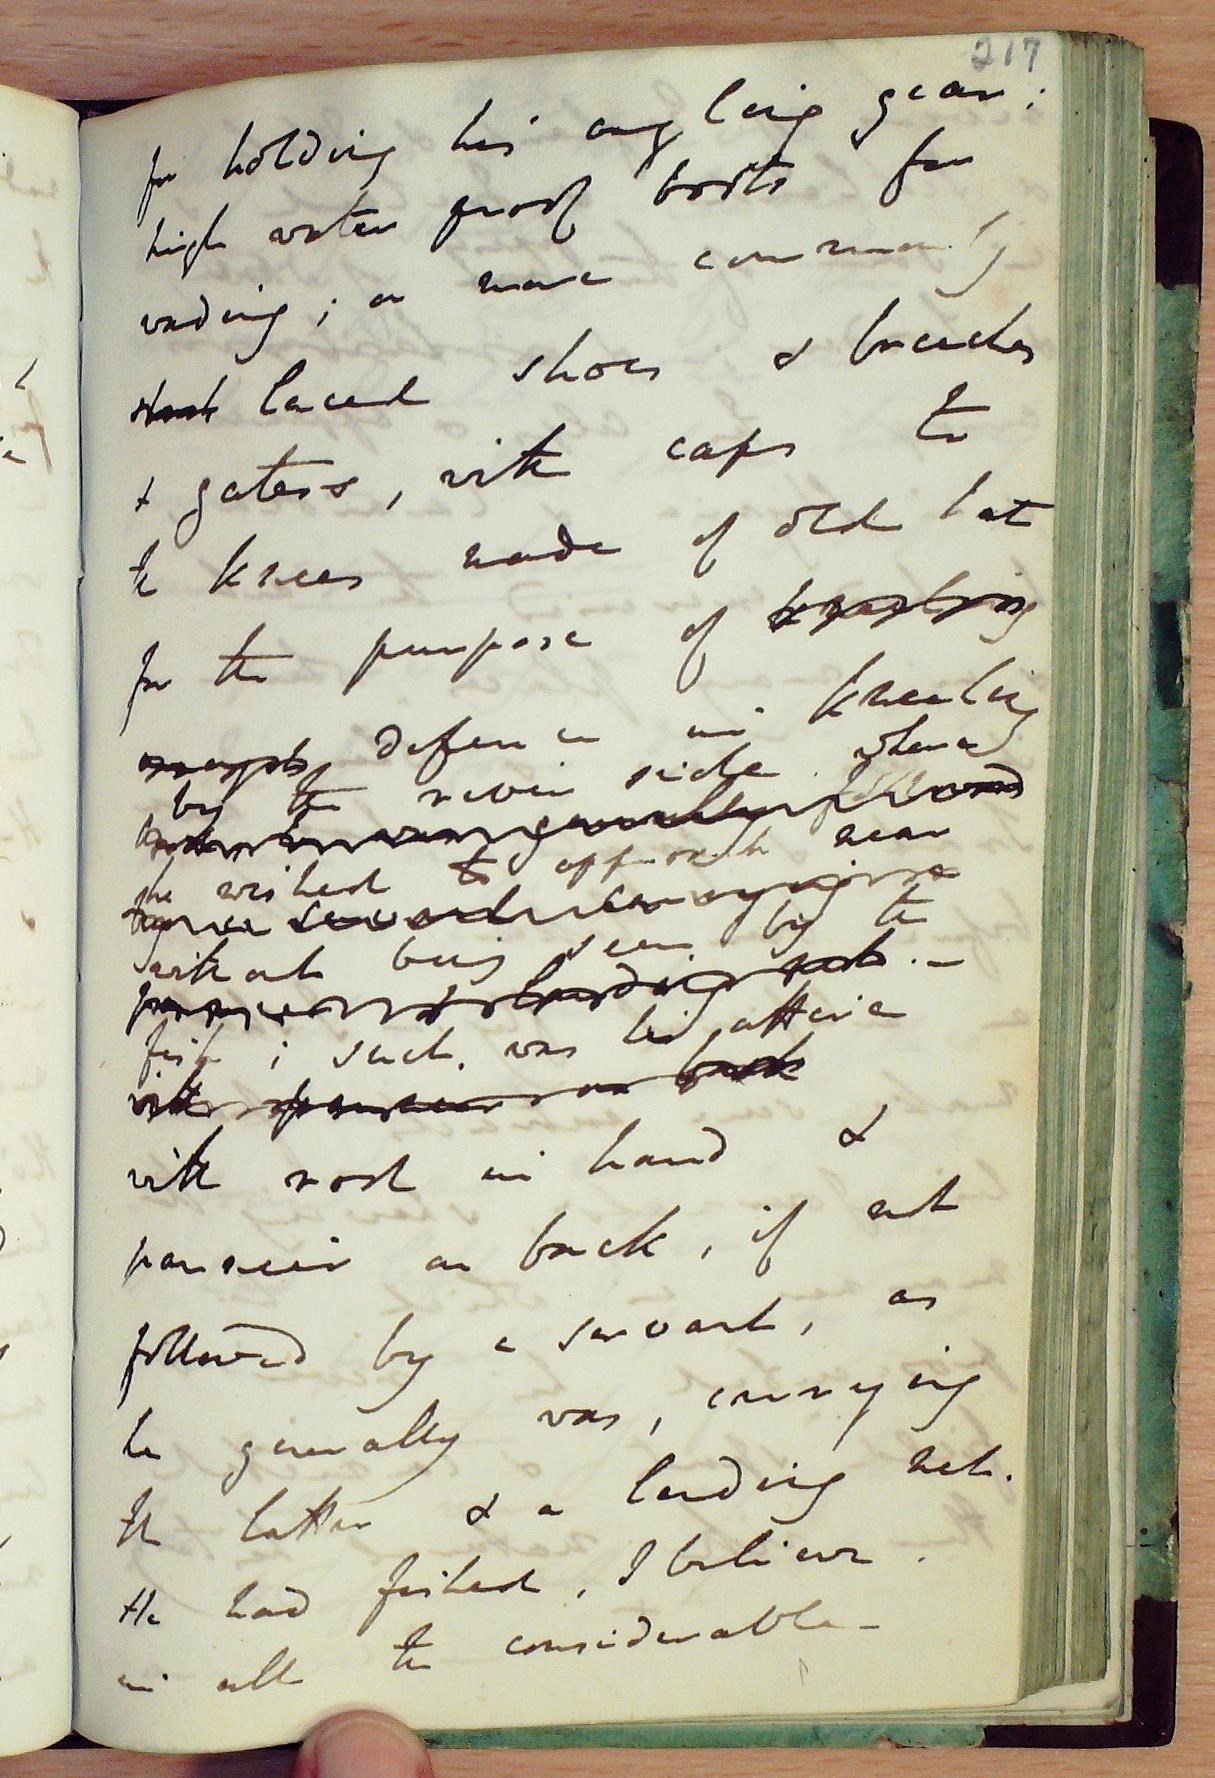 217
for holding his angling gear;
high water proof boots for
wading; or more commonly
laced shoes & breeches
& gaters, with caps to
the knees made of old hat
for the purpose of
defence in kneeling
by the river side where
and he was generally followed
he wished to approach near
by a servant carrying
without being seen by the
pannier & landing net. –
fish; such was his attire
with pannier on back
with rod in hand &
pannier on back, if not
followed by a servant, as
he generally was, carrying
the latter & a landing net.
He had fished, I believe
in all the considerable